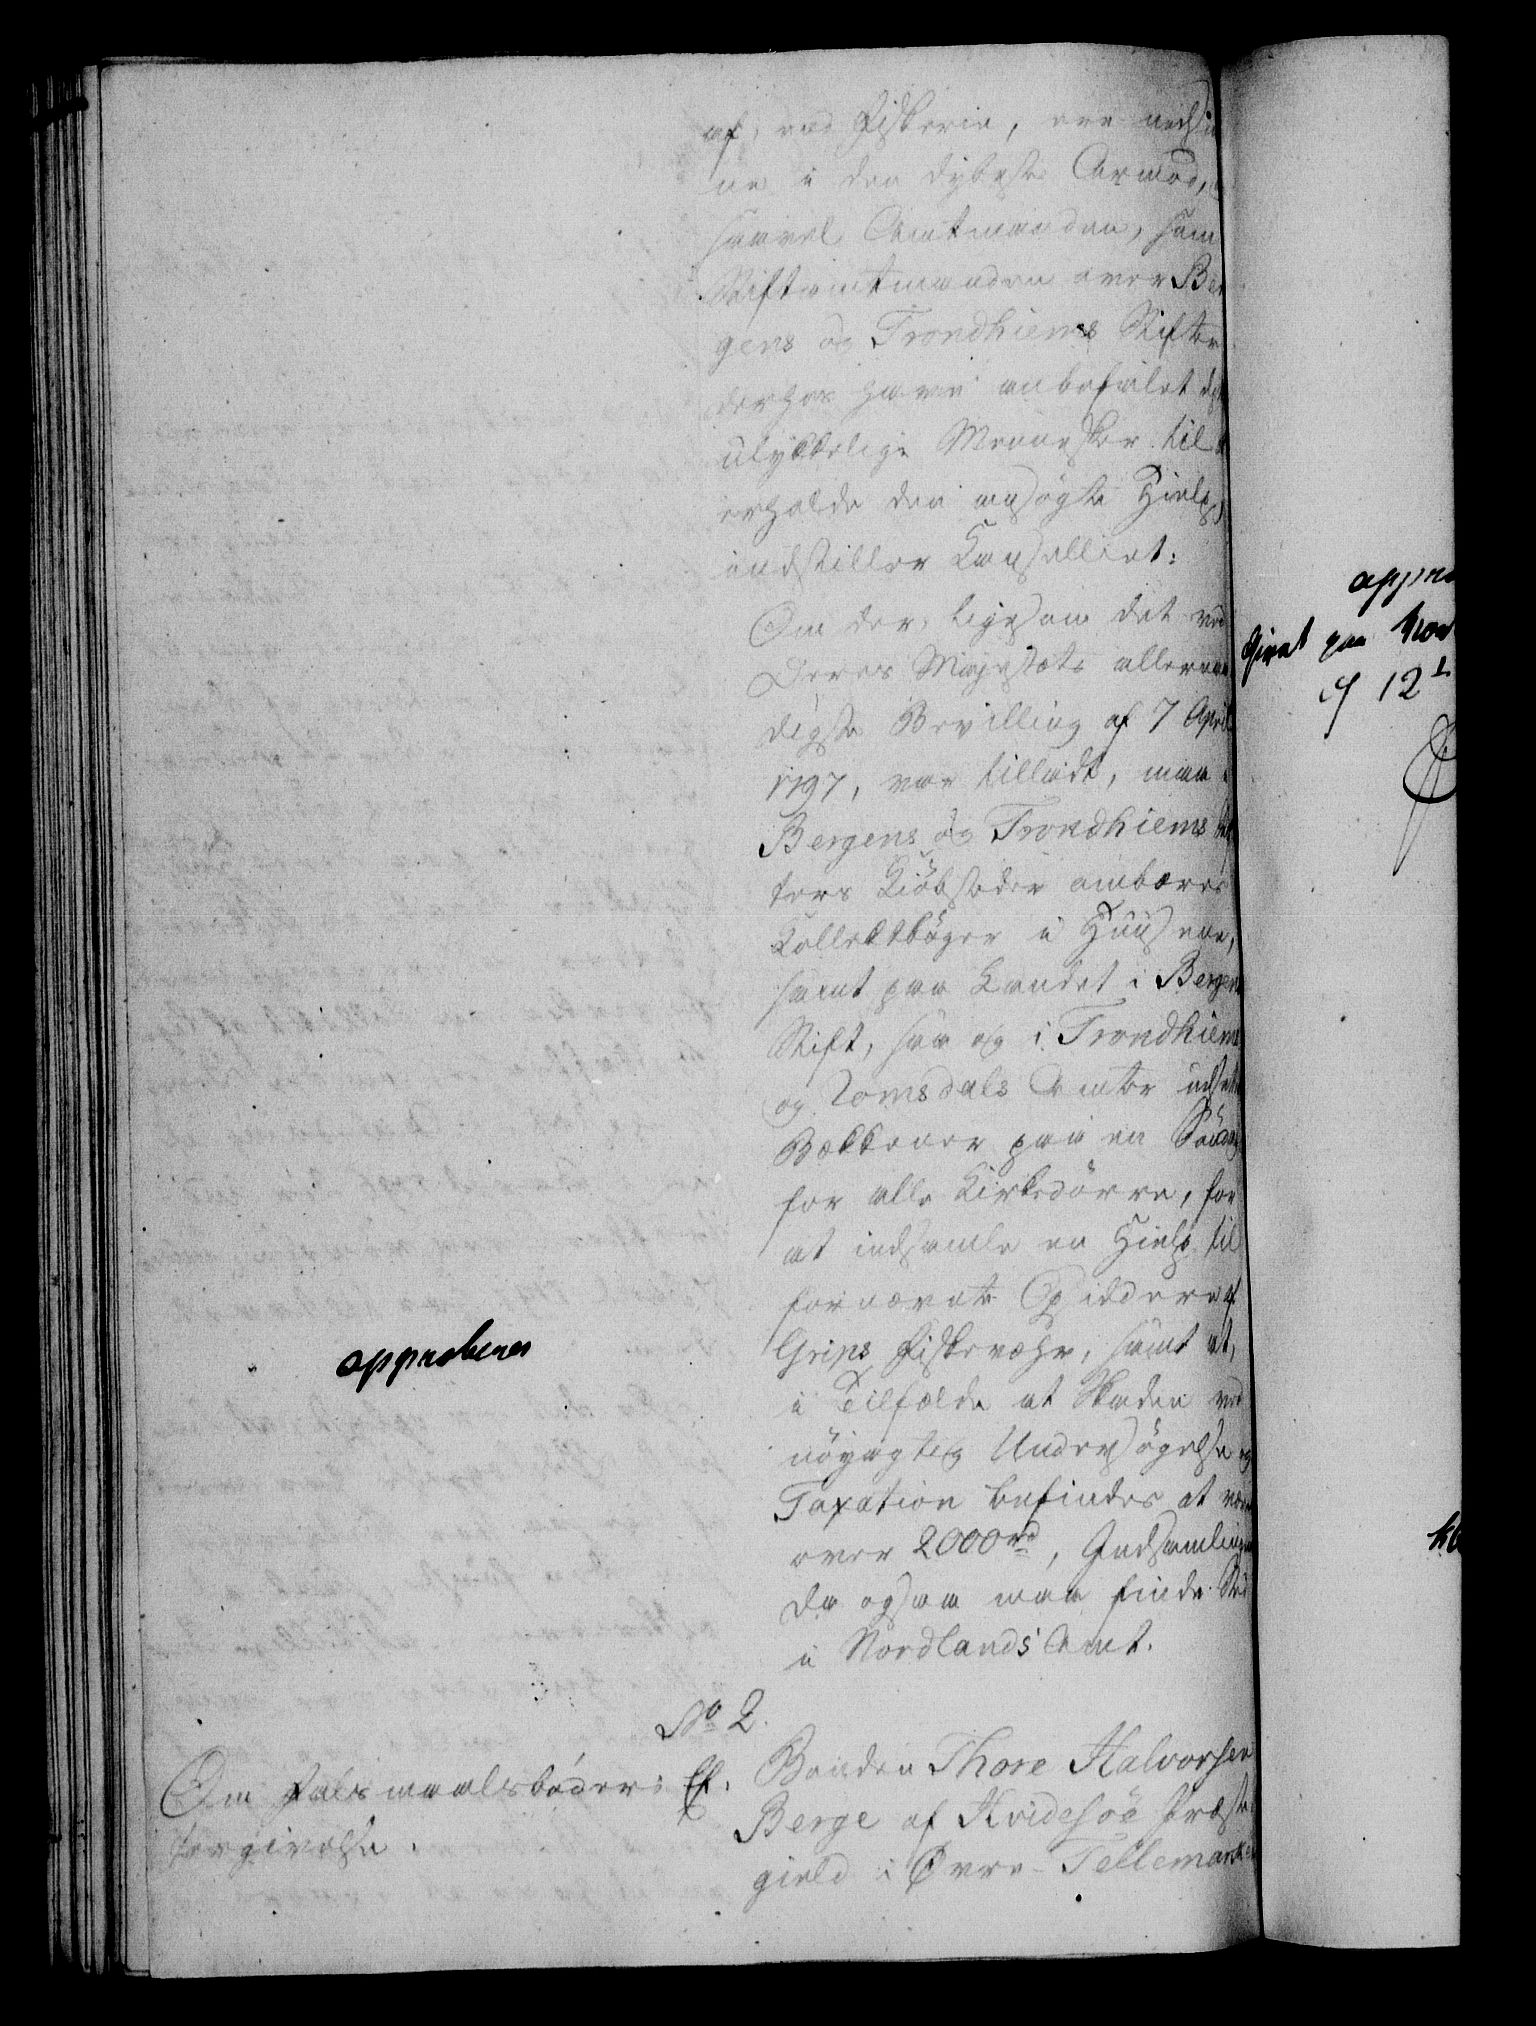 af, ved Fiskerie, ere nedsun
ne i den dybeste Armod, 
saavel Amtmanden, som
Stiftamtmanden over Ber
gens og Trondhiems Stifter
derhos have anbefalet disse
ulykkelige Mennesker til at
erholde den ansøgte Hielp,
indstiller Kanselliet:
Om der, ligesom det ved
Deres Majestæts allernaa
digste Bevilling af 7 April
1797, var tilladt, maa i
Bergens og Trondhiems Stif
ters Kiöbstæder ombæres
Kollektbøger i Huusene,
samt paa Landet i Bergens
Stift, saa og i Trondhiems
og Romsdals Amter udsættes
Bækkener paa en Søndag
for alle Kirkedörre, for
at indsamle en Hielp til
fornævnte Opsiddere af
Grips Fiskevæhr, samt at,
i Tilfælde at Skaden ved
nöyagtig Undersögelse og
Taxation befindes at være
over 2000 rd, Indsamlingen
da ogsaa maa finde Sted
i Nordlands Amt.
approberes
No 2.
Om Leiermaalsbøders Ef-
tergivelse.
Bonden Thore Halvorsen
Berge af Hvidesøe Præste
gield i Øvre-Tellemarken
appro
Givet paa Kron
d 12